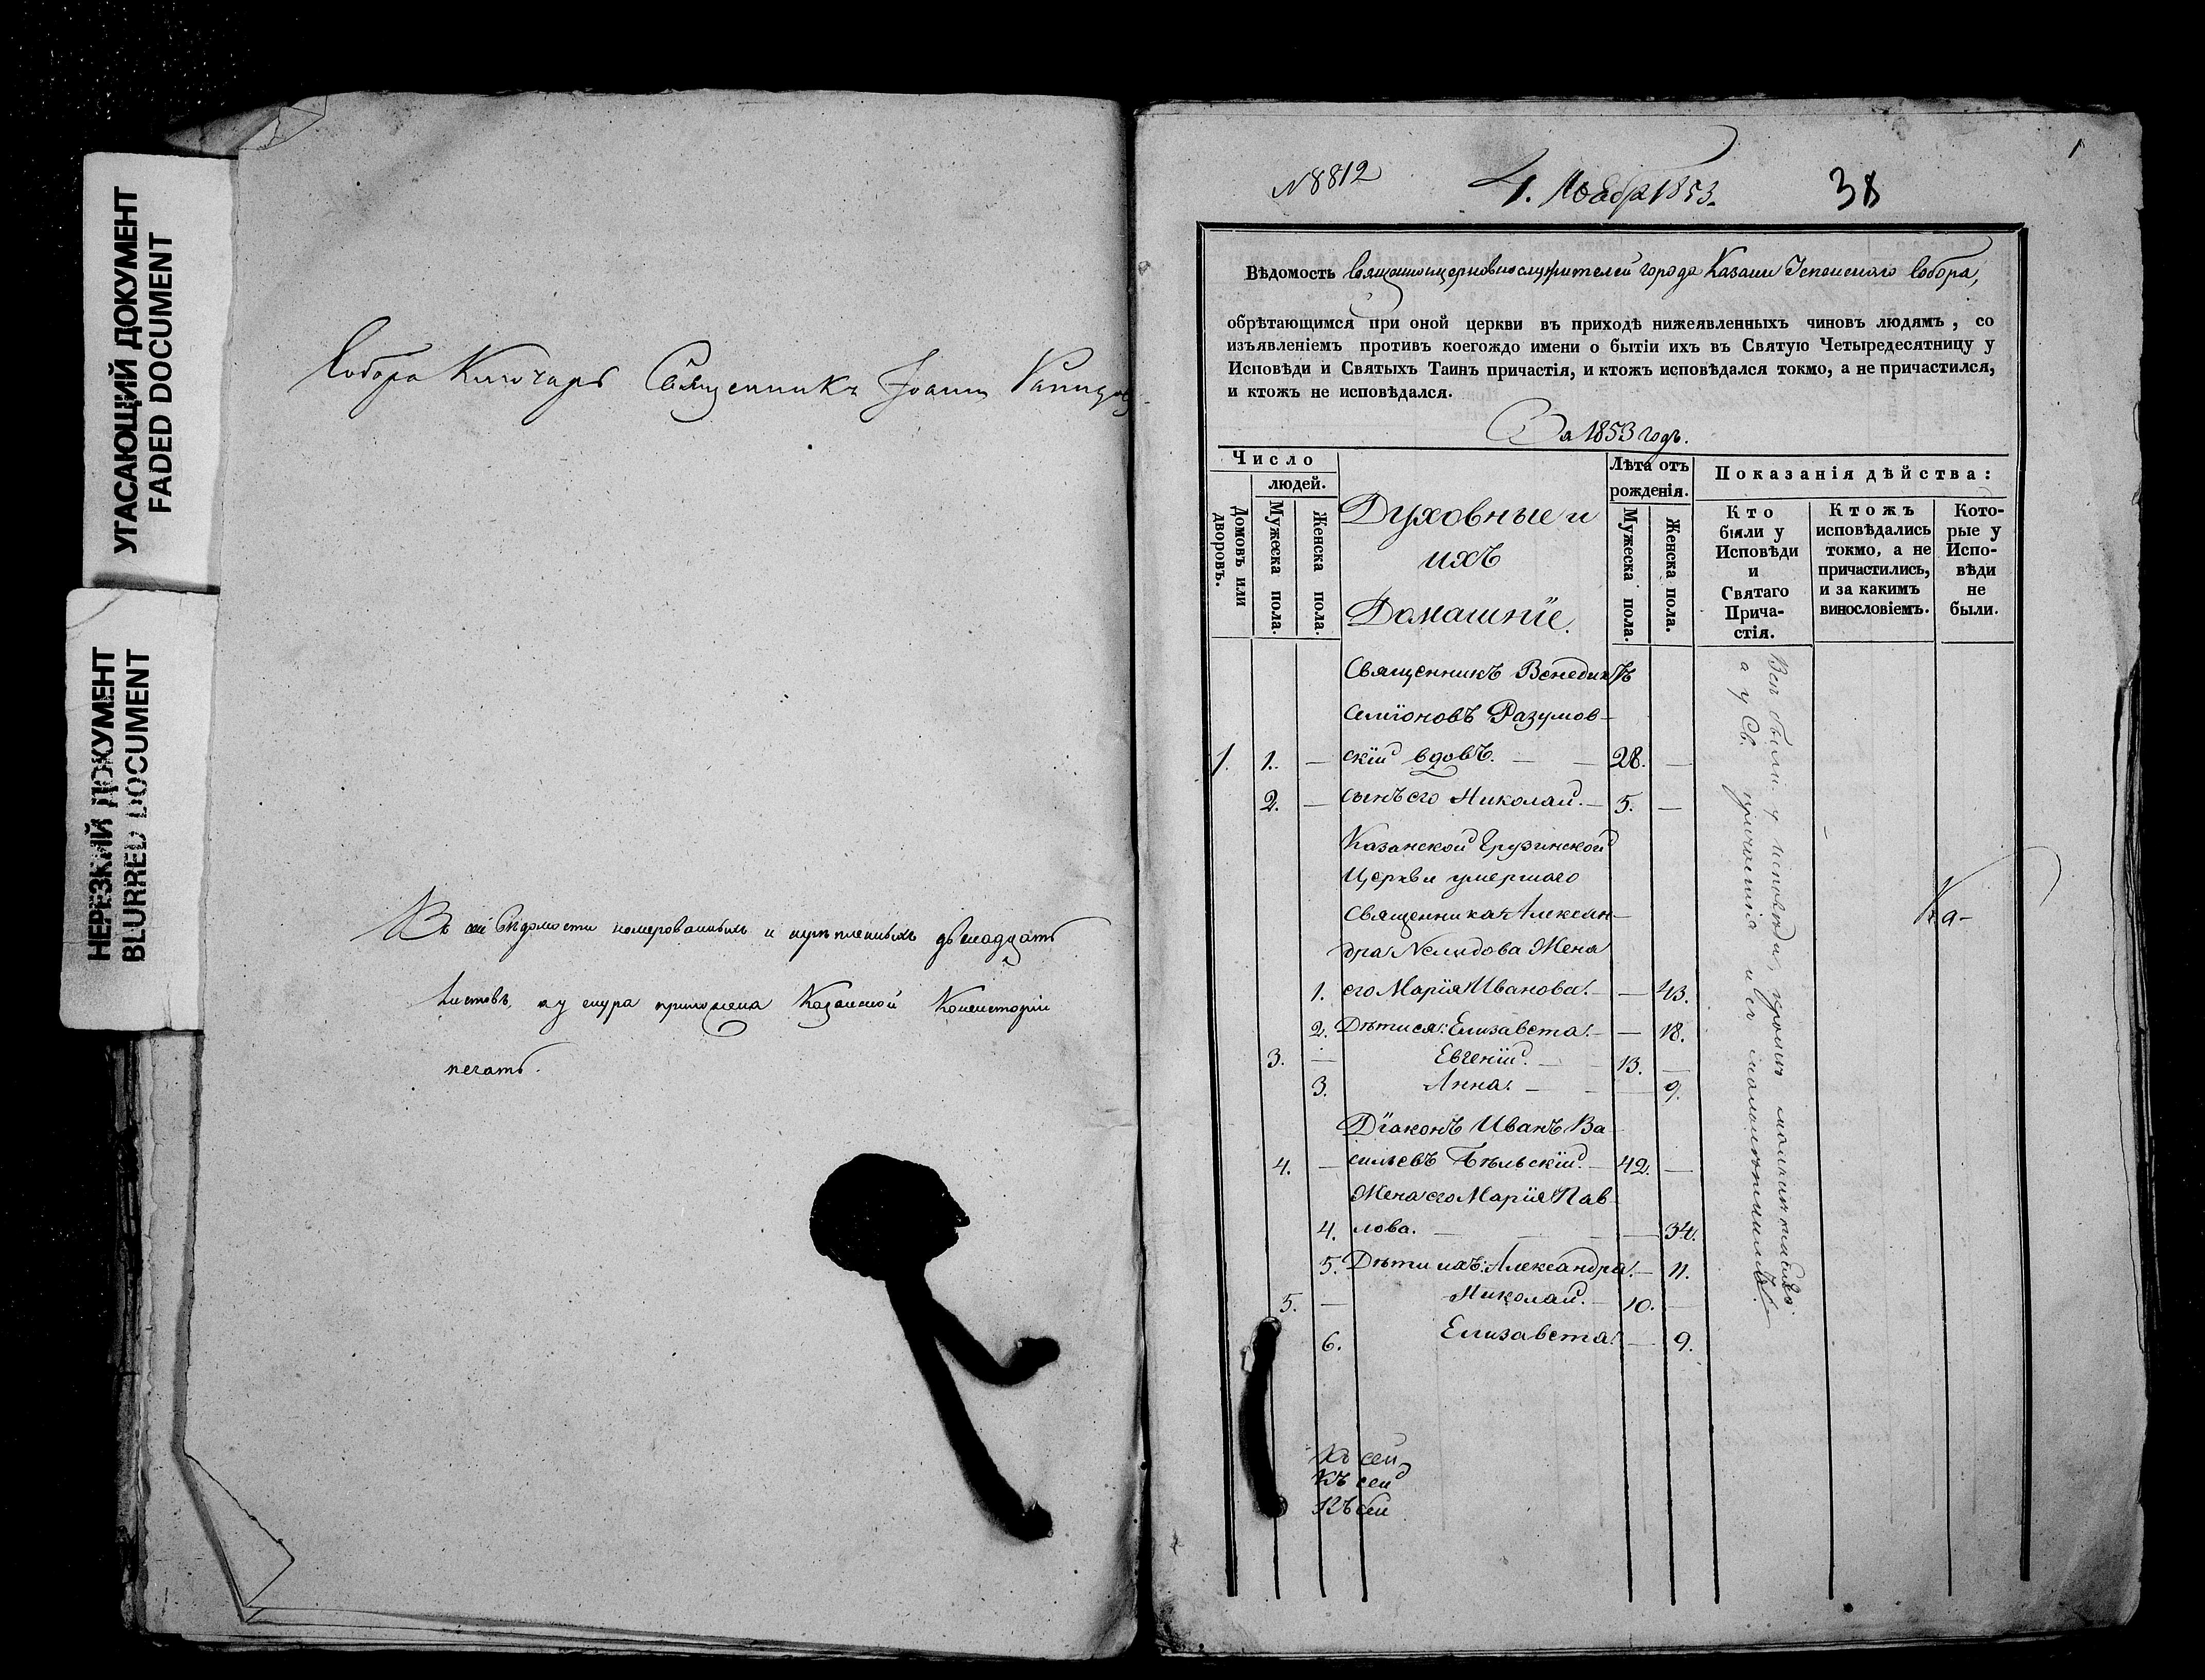 УГАСАЮЩИЙ ДОКУМЕНТ
FADED DOCUMENT
НЕРЕЗКИЙ ДОКУМЕНТ
BLURRED DOCUMENT
Собора Ключарь Священникъ Іоаннъ
Въ сей вѣдомости номерованныхъ и двенадцать
листовъ, къ шнура приложена Казанской Консисторіи
печать.
1
№ 8812
4. Ноября 1853.
38
Вѣдомость Священноцерковнослужителей города Казани Успенскаго Собора,
обрѣтающимся при оной церкви въ приходѣ нижеявленныхъ чиновъ людямъ, со
изъявленіемъ противъ коегождо имени о бытіи ихъ въ Святую Четыредесятницу у
Исповѣди и Святыхъ Таинъ причастія, и ктожъ исповѣдался токмо, а не причастился,
и ктожъ не исповѣдался.
За 1853 годъ.
Число
людей.
Домовъ или
дворовъ.
Мужеска пола.
Женска пола.
Духовные и
ихъ
Домашніе.
Лѣта отъ
рожденія.
Мужеска пола.
Женска пола.
Показанія дѣйства:
Кто
были у
Исповѣди
и
Святаго
Прича-
стія.
Ктожъ
исповѣдались
токмо, а не
причастились,
и за какимъ
винословіемъ.
Кото-
рые у
Испо-
вѣди
не
были.
Священникъ Венедиктъ
Семіоновъ Разумов-
1. 1. — скій вдовъ. — — 28. —
2. — сынъ его Николай. — 5. —
Казанской Грузинской
Церкви умершаго
Священника Алексан-
дра Нелидова Жена
1. его Марія Иванова. — — 43.
2. Дѣти ея: Елизавета. — — 18.
3. — Евгеній. — 13. —
3. Анна. — — 9.
Діаконъ Иванъ Ва-
4. — сильевъ Бѣльскій. — 42. —
Жена его Марія Пав-
4. лова. — — — 34.
5. Дѣти ихъ: Александра. — 11.
5. — Николай. — 10. —
6. Елизавета. — 9.
Всѣ были у исповѣди, кромѣ
а у Св. причастія и съ
Къ сей
Къ сей
Къ сей